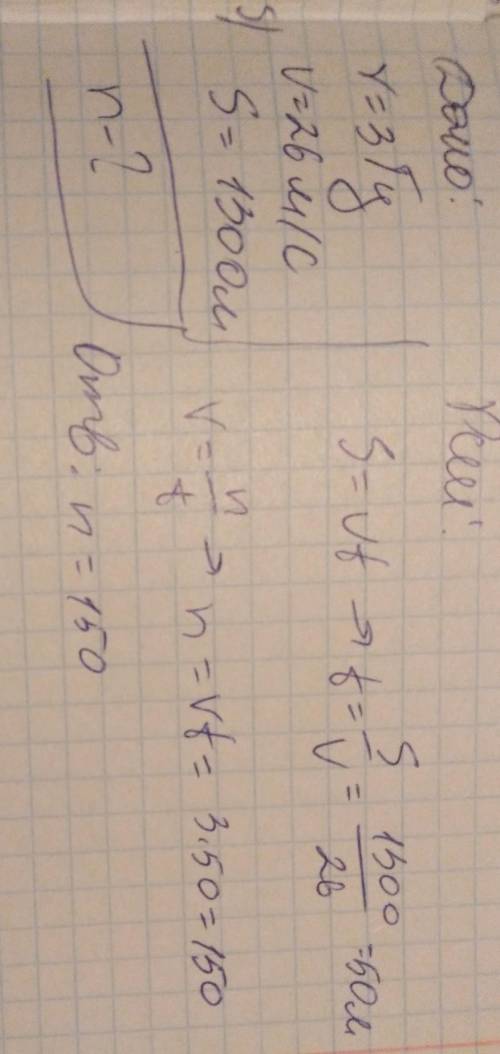 5)
Дано:
γ = 3 Гц
V = 26 м/с
S = 1300 м
n - ?
Реш:
S = Vt → t = S/V = 1300/26 = 50 м
ν = n/t → n = νt = 3.50 = 150
Отв: n = 150